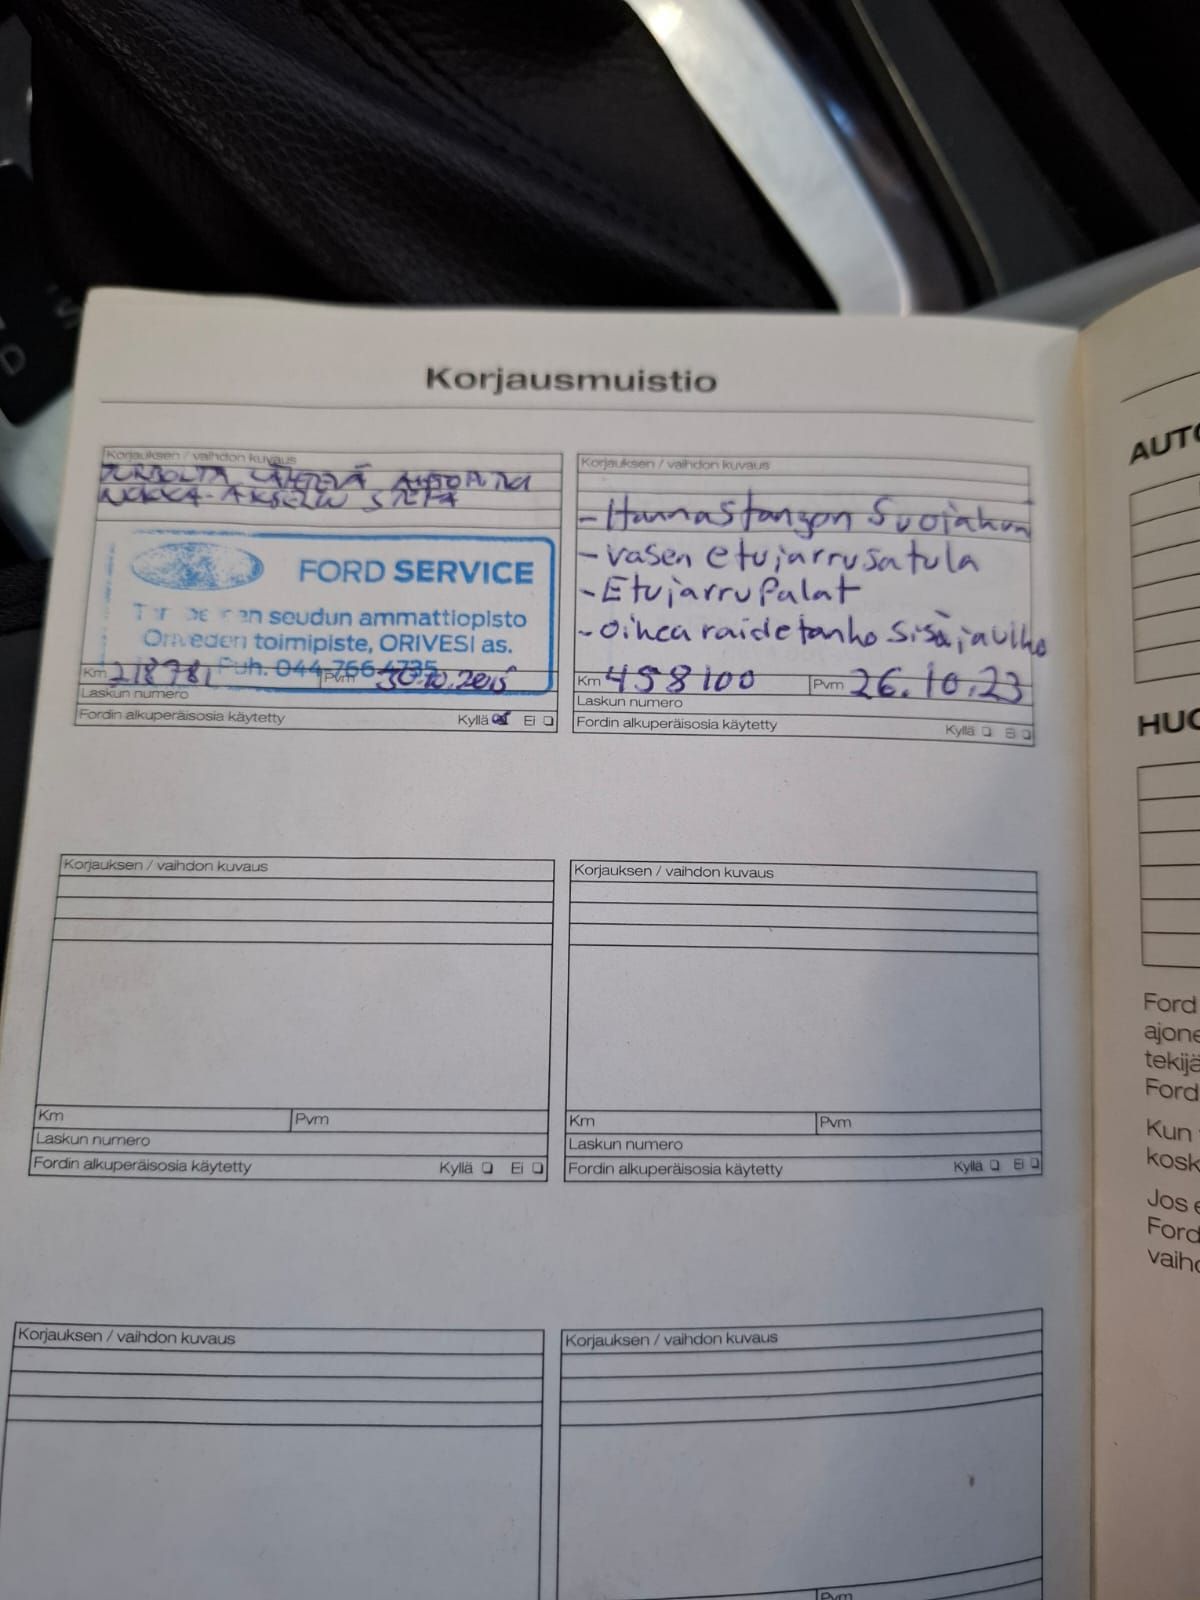 Korjausmuistio
Korjauksen / vaihdon kuvaus
TURBOLTA LÄHTEVÄ
NOKKA-AKSELIN
FORD SERVICE
seudun ammattiopisto
Oriveden toimipiste, ORIVESI as.
Puh. 044 766 4735
Km 218781 Pvm 30.10.2015
Laskun numero
Fordin alkuperäisosia käytetty Kyllä Ei
Korjauksen / vaihdon kuvaus
- Hannastangon Suojakumi
- vasen etujarrusatula
- Etujarrupalat
- oikea raidetanko sisä ja ulko
Km 458100 Pvm 26.10.23
Laskun numero
Fordin alkuperäisosia käytetty Kyllä Ei
Korjauksen / vaihdon kuvaus
Km Pvm
Laskun numero
Fordin alkuperäisosia käytetty Kyllä Ei
Korjauksen / vaihdon kuvaus
Km Pvm
Laskun numero
Fordin alkuperäisosia käytetty Kyllä Ei
Korjauksen / vaihdon kuvaus
Korjauksen / vaihdon kuvaus
Pvm
AUTO
HUO
Ford
ajone
tekijä
Ford
Kun
kosk
Jos e
Ford
vaihd
D